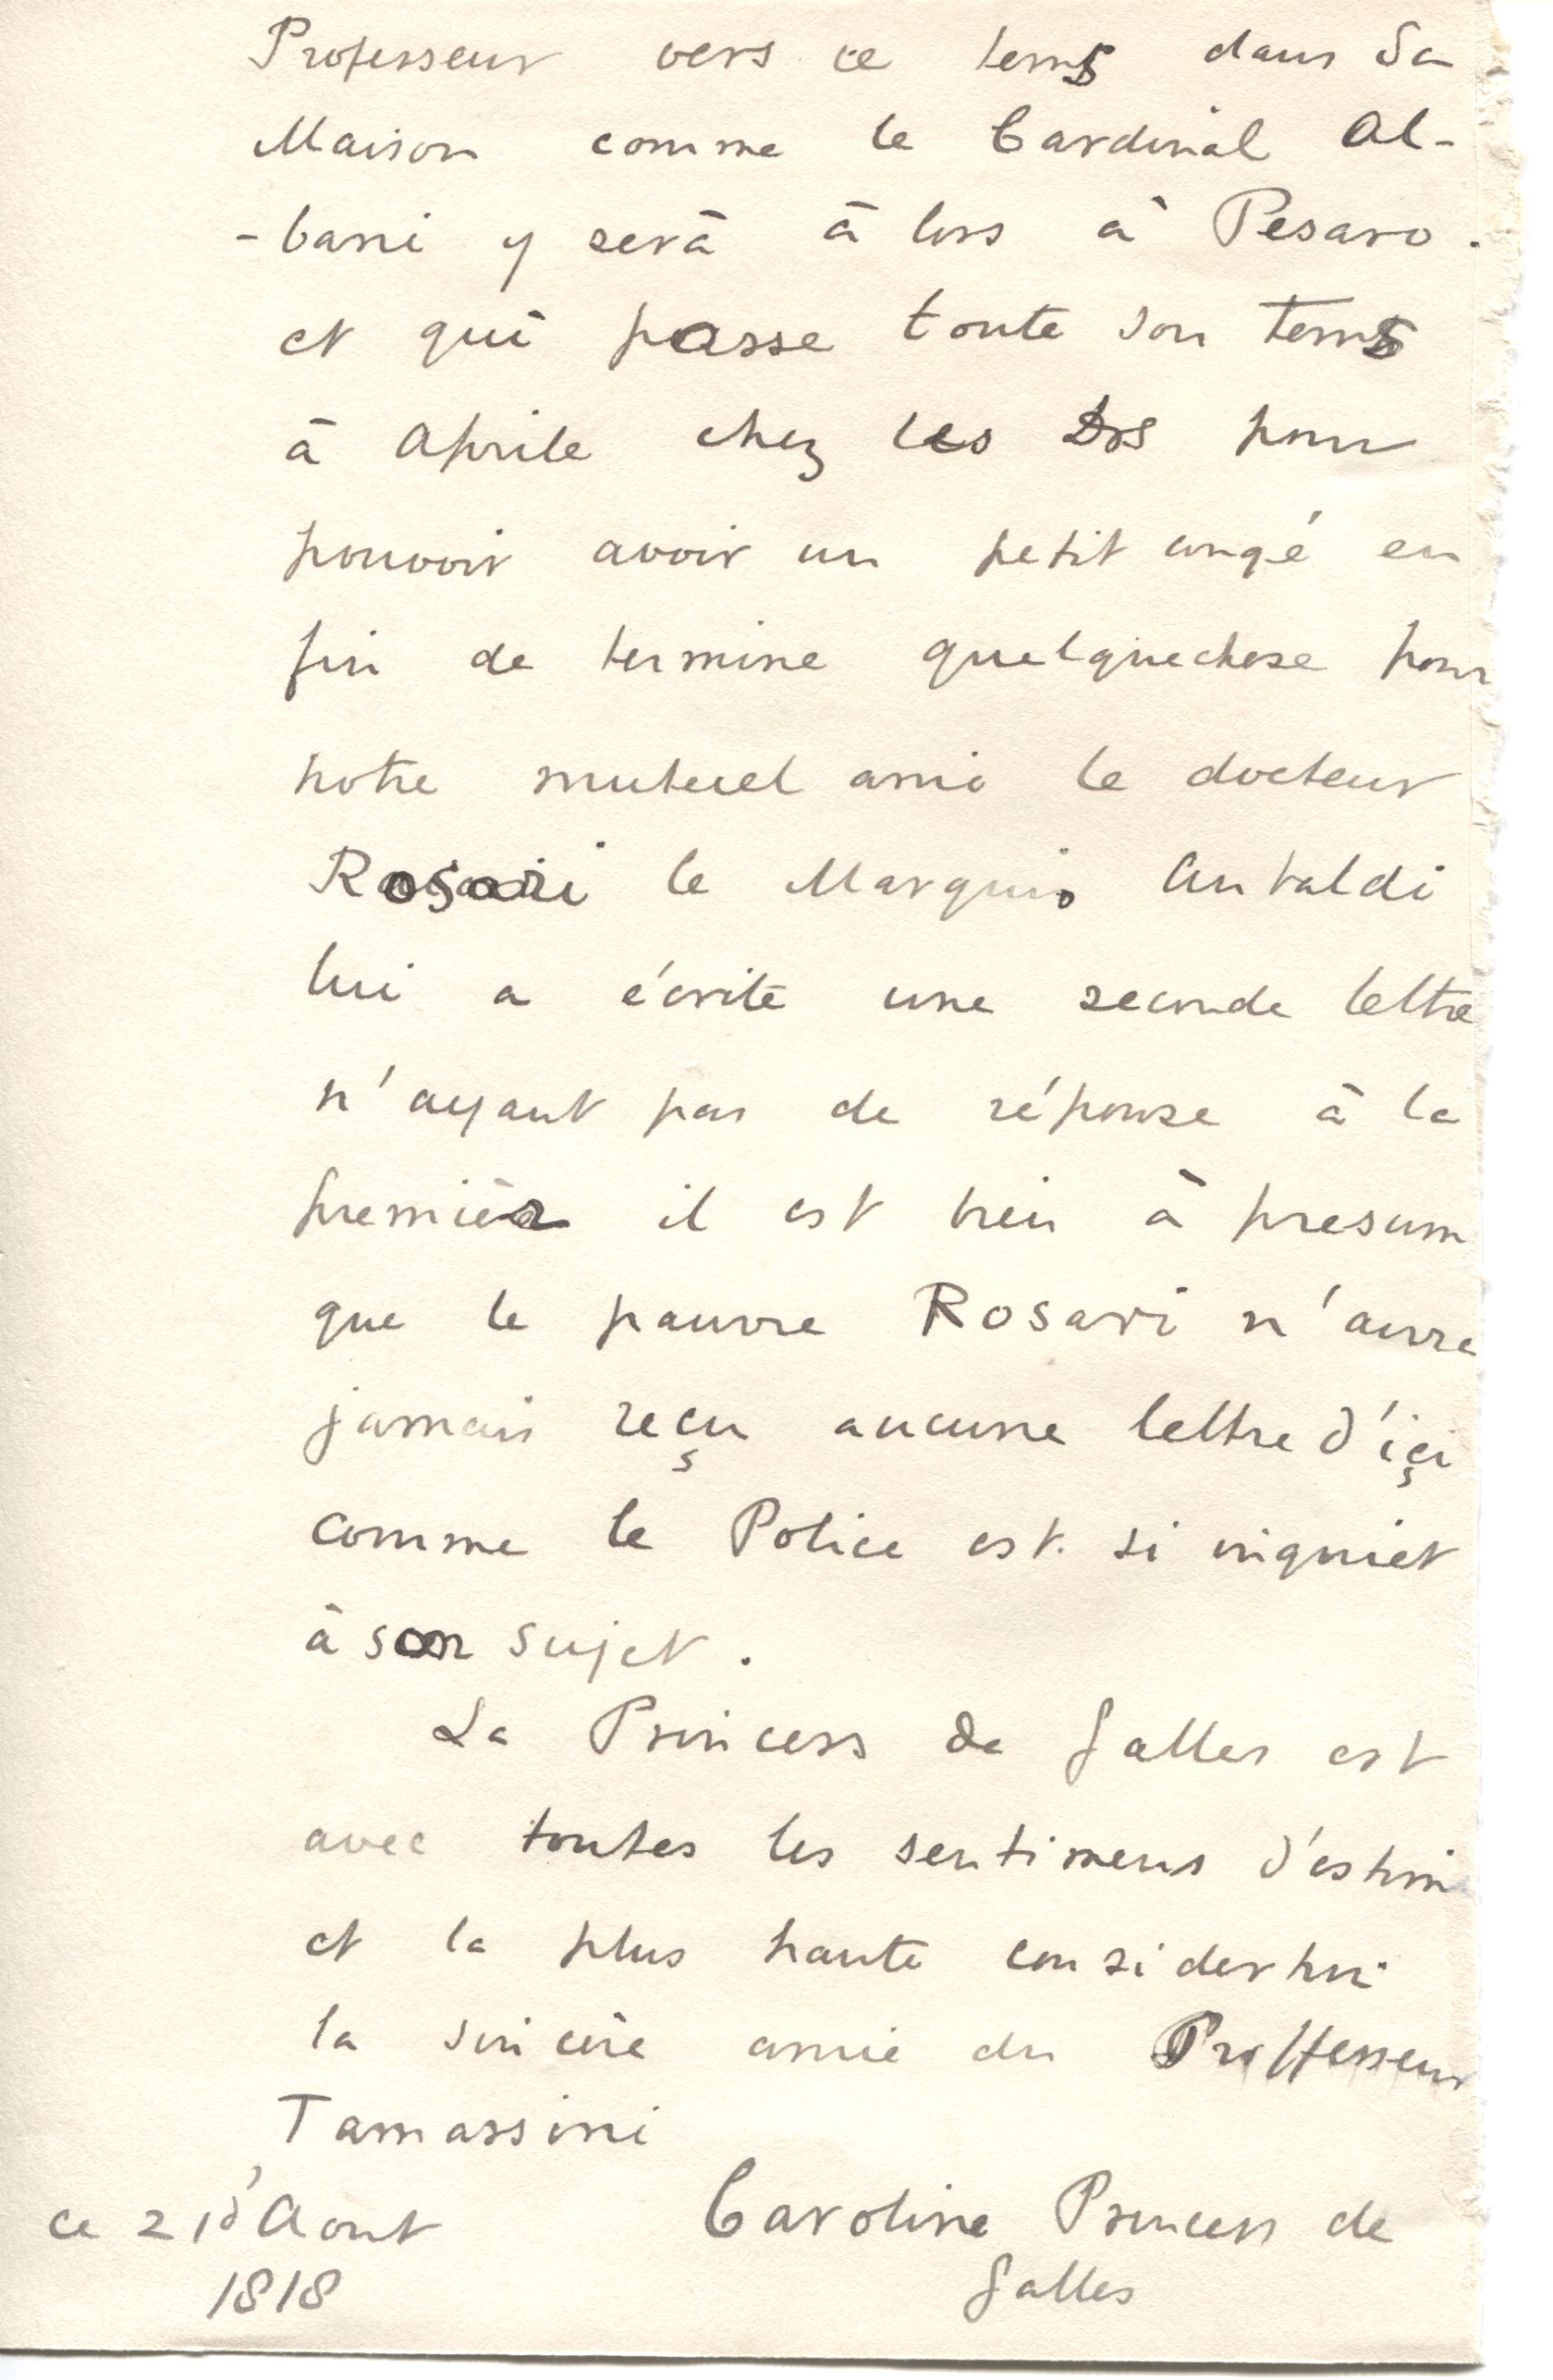 Professeur vers ce tems dans Sa
Maison comme le Cardinal Al-
-bani y serà à lors à Pesaro.
et qui passe toute son tems
à Aprile chez les pour
pouvoir avoir un petit congé en
fin de termine quelquechose pour
notre mutuel ami le docteur
Rosari le Marquis Antaldi
lui a écrite une seconde lettre
n'ayant pas de réponse à la
premièr il est bien à presum
que le pauvre Rosari n'aura
jamais reçu aucune lettre d'içi
comme le Police est si inquiet
à son sujet.
La Princess de Galles est
avec toutes les sentimens d'estim
et la plus haute
la sincère amie du Proffesseur
Tamassini
ce 21 d'Aout
1818
Caroline Princess de
Galles